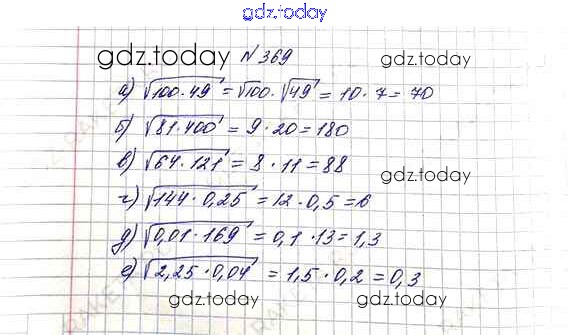 gdz.today
gdz.today № 369 gdz.today
а) √100·49 = √100 · √49 = 10 · 7 = 70
б) √81·400 = 9 · 20 = 180
в) √64·121 = 8 · 11 = 88
gdz.today
г) √144·0,25 = 12 · 0,5 = 6
д) √0,01·169 = 0,1 · 13 = 1,3
е) √2,25·0,04 = 1,5 · 0,2 = 0,3
gdz.today gdz.today